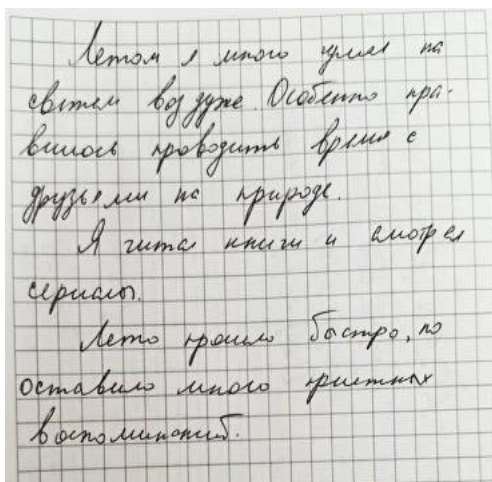 Летом я много гулял на
свежем воздухе. Особенно нра-
вилось проводить время с
друзьями на природе.
Я читал книги и смотрел
сериалы.
Лето прошло быстро, но
оставило много приятных
воспоминаний.